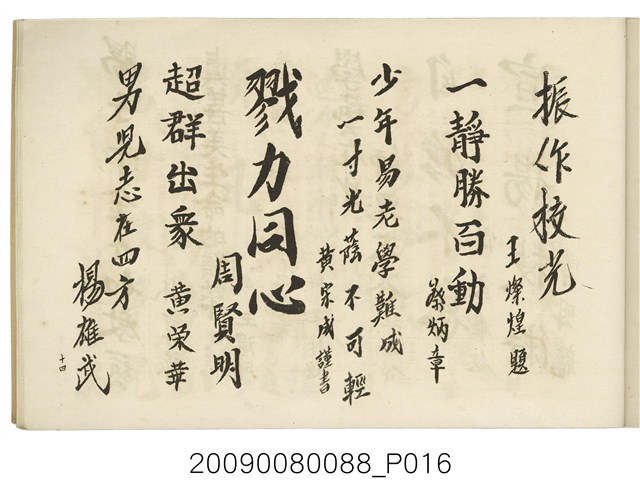 振作校光
王燦煌題
一靜勝百動
蔡炳章
少年易老學難成
一寸光蔭不可輕
黃宗成謹書
戮力同心
周賢明
超群出眾
黃榮華
男兒志在四方
楊雄武
十四
20090080088_P016